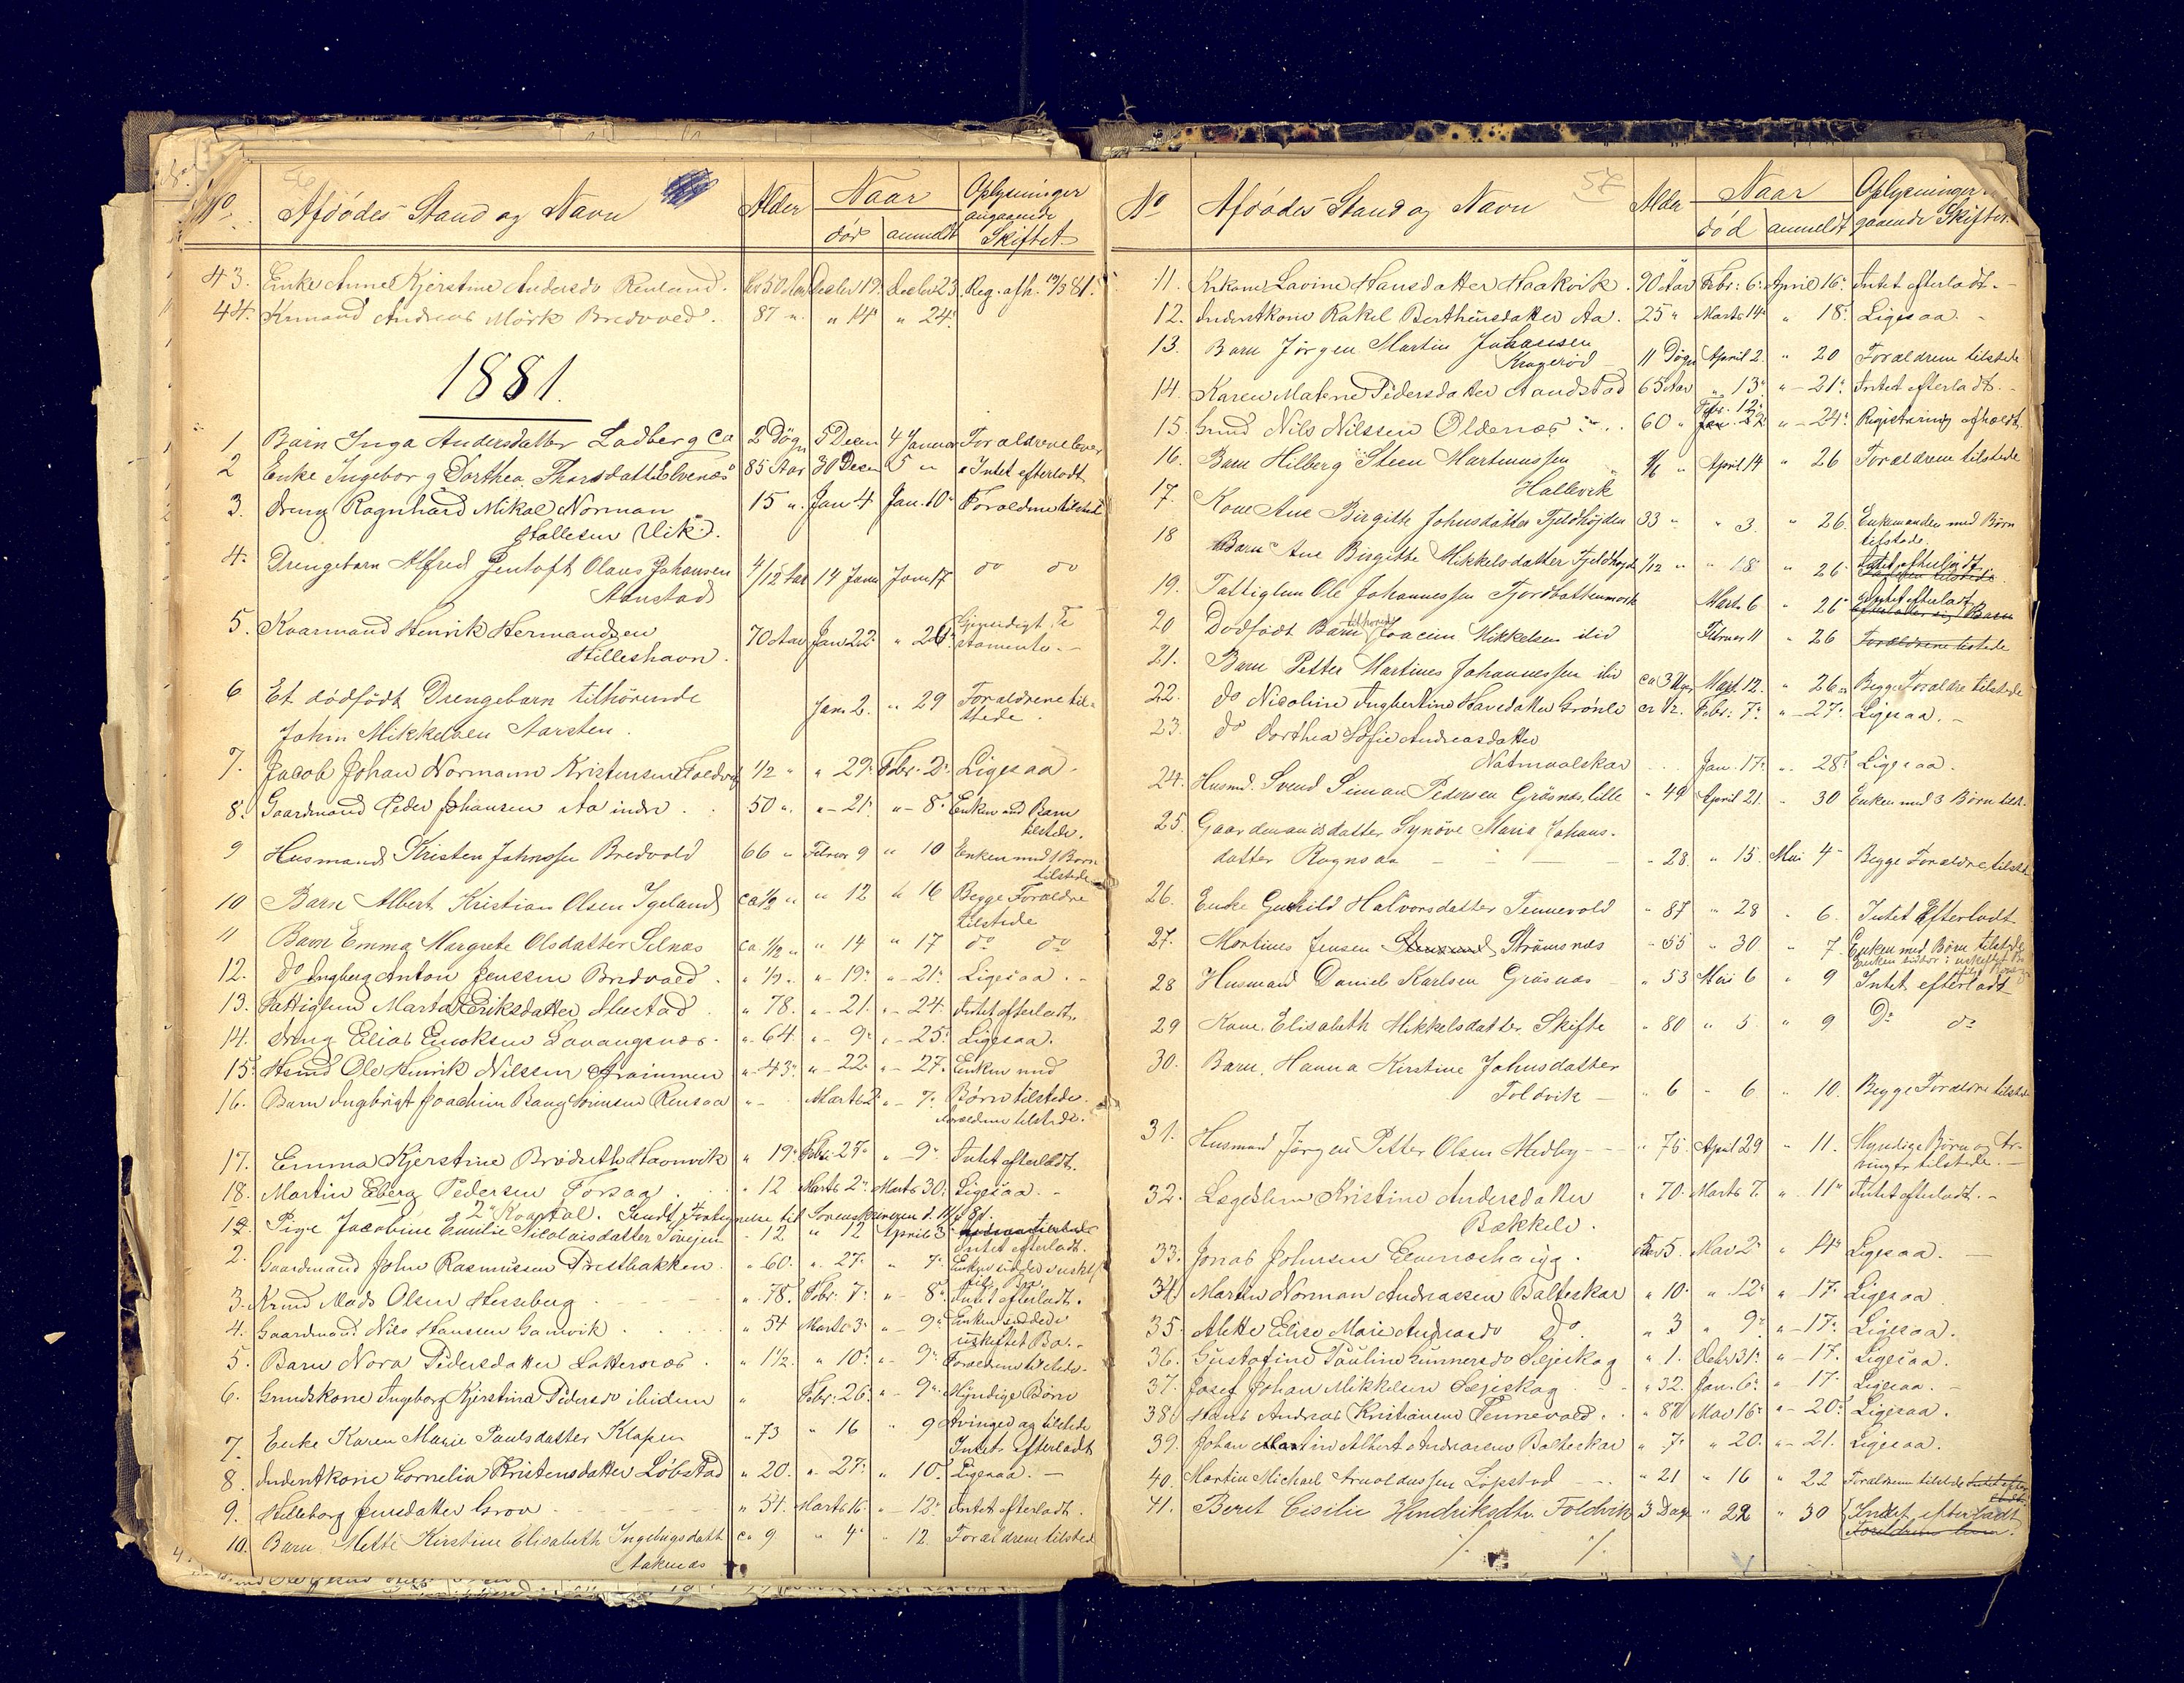 56
No. Afdödes Stand og Navn Alder Naar Oplysninger
död anmeldt angaaende
Skiftet
43. Enke Anne Kjerstine Andersdr Renland. 50 Aar Decbr 19. Decbr 23. Reg. afh. 81.
44. Krmand Andreas Mörk Bredvold. 87 " " 14 " 24.
1881.
1 Barn Inga Andersdatter Ladberg ca 2 Dögn 5 Decem 4 Januar Forældrene lever
2 Enke Ingeborg Dorthea Thorsdatter Elvenæs 85 Aar 30 Decem 5 " Intet efterladt
3. Dreng Ragnhard Mikal Norman 15 ". Jan 4 Jan. 10 Forældrene tilstede
Hallesen Vik.
4. Drengebarn Alfred Jentoft Olaus Johansen 4/12 Aar 14 Janu Janu 17 do do
Aanstad
5. Kaarmand Henrik Hermandsen 70 Aar Jan 22. " 26.
Hilleshavn. stamente. -
6 Et dödfödt Drengebarn tilhörende Janu 2. " 29 Forældrene til-
Johin Mikkelsen Aarsten. stede.
7. Jacob Johan Normann Kristensen Foldvig 1/2 " " 29. Febr. 2. Ligesaa.
8. Gaardmand Peder Johansen Aa indre . . 50 ". " - 21. " - 8. Enken med Barn
tilstede.
9 Husmand Kristen Johnsen Bredvold 66 " Februar 9 " 10 Enken med 1 Barn
tilstede
10 Barn Albert Kristian Olsen Igeland ca 1/2 " " 12 " 16 Begge Forældre
tilstede
11 Barn Emma Margrete Olsdatter Selnæs ca. 1/2 " " 14 " 17 do do
12. do Ingberg Anton Jenssen Bredvold . " 1/2 " - 19. " - 21. Ligesaa. -
13. Fattiglem Marta Eriksdatter . " 78. " - 21. " - 24. Intet efterladt.
14. Dreng Elias Enoksen Lavangsnæs . " - 64. " - 9. " - 25. Ligesaa.
15. Hsmd Ole Henrik Nilssen " - 43. " - 22. " - 27. Enken med
16. Barn Ingbrigt Joachim Bang Sörensen Rensaa " - Marts 2. " - 7. Börn tilstede.
Forældrene tilstede.
17. Emma Kjerstine Havnvik " 19. Febr. 27. " - 9. Intet efterladt.
18. Martin Eberg Pedersen Forsaa . " 12 Marts 2. Marts 30. Ligesaa. -
2. Kvartal. Sendt Fortegnelse til Sorenskriveren d. 11/4 81.
1. Pige Jacobine Emilie Nicolaisdatter - 12 " 12 April 3.
Intet efterladt.
2. Gaardmand John Rasmussen Prestbakken. " 60. ". 27. " 7. Enken sidder i uskif
tet Bo.
3. Krmd Mads Olsen Hesseberg " 78. Febr. 7. " - 8. Intet efterladt.
4. Gaardmand Nils Hanssen Gamvik . . . . " 54 Marts 3. " - 9. Enken sidder i
uskiftet Bo. -
5. Barn Nora Pedersdatter Lattersnæs . " 1 1/2. " 10. " - 9. Forældrene tilstede.
6. Grundskone Ingeborg Kjerstina Pedersdr ibidem " Febr. 26. " - 9. Myndige Börn
7. Enke Karen Marie Paulsdatter Klapen " 73 " 16 " 9 Arvinger og tilstede
Intet efterladt
8. Inderstkone Cornelia Kristensdatter Löbstad " 20. ". 27. " 10. Ligesaa. -
9. Hilleborg Jensdatter Grov " 54. Marts 16. " - 12. Intet efterladt.
10. Barn. Mette Kirstine Elisabeth Ingebrigsdatt ca 9 " 4. " 12. Forældrene tilsted
Aaknæs
57
No Afdödes Stand og Navn Alder Naar Oplysninger
död anmeldt gaaende Skiftet.
11. Krkone Lavine Hansdatter Haakvik. 90 Aar Febr. 6. April 16. Intet efterladt. -
12. Inderstkone Rakel Berthensdatter Aa. 25 " Marts 14. " 18. Ligesaa. -
13. Barn Jörgen Martin Johansen
Kragerød 11 Dögn April 2. " 20 Forældrene tilstede
14. Karen Matene Pedersdatter Aandstad 65 Aar " 13. " - 21. Intet efterladt. -
15. Grmd Nils Nilssen Oldenæs . . . 60 " Febr. 12. Jan. 22. " - 24. Registrering afholdt
16. Barn Hilberg Steen Martinussen
Hallevik " April 14 " 26 Forældrene tilstede
17. Kone Ane Birgitte Johnsdatter Fjeldhöjden 33 " " 3. " 26. Enkemanden med Börn
tilstede.
18 Barn Ane Birgitte Mikkelsdatter Fjeldhöjd 1/12 " " 18 " 26 Intet efterladt.
19. Fattiglem Ole Johannessen Fjordbottenmark Marts 6 " 26 Intet efterladt
20 Dödfödt Barn tilhörende Joacim Mikkelsen ibid Februar 11 " 26 Forældrene tilstede
21. Barn Petter Martines Johannessen ibid ca 3 Uger Mart. 12. " 26 " Begge Forældre tilstede
22. do Nicoline Ingbertine Hansdatter Grönli ca 1/2. Febr. 7. " - 27. Ligesaa. -
23. do Dorthea Sofie Andreasdatter
Natmaalskar . . . Jan. 17. " 28. Ligesaa.
24. Husmd. Svend Simon Pedersen Gräsnæs, lille " 49 April 21. " 30 Enken med 3 Börn tilst.
25. Gaardmandsdatter Synöve Maria Johans-
datter Rognsaa " 28. " 15. Mai 4 - Begge Forældre tilsted
26. Enke Gunhild Halvorsdatter Tennevold " 87 " 28 " 6. Intet Efterladt
27. Martines Jensen Strömsnæs " 55 " 30 " 7. Enken med Börn tilstede
Enken sidder i uskiftet Bo
28 Husmand Daniel Karlsen Gräsnæs " 53 Mai 6 " 9 Intet efterladt
29 Kone. Elisabeth Mikkelsdatter. Skifte " 80 " 5. " 9 Do do
30. Barn. Hanna Kirstine Johnsdatter
Foldvik " 6 - 6 " 10. Begge Forældre tilstede
31. Husmand Jörgen Petter Olsen Medby " 76. April 29 " 11. Myndige Börn og Ar-
vinger tilstede. -
32. Lægdslem Kristine Andersdatter " 70. Marts 7. " 11. Intet efterladt. -
Bakkelv.
33. Jonas Johnsen Elvenæshaug. 5. Mai 2. " 14. Ligesaa. -
34. Martin Norman Andreassen Balteskar " 10. " 12. " - 17. Ligesaa
35. Alette Elise Marie Andreasdr do. " 3 " 9. " - 17. Ligesaa.
36. Gustafine Pauline Gunnersdr Seljeskog " 1. Debr 31. " - 17. Ligesaa.
37. Josef Johan Mikkelsen Seljeskog " 32. Jan. 6. " - 17. Ligesaa. -
38. Hans Andreas Kristiansen Tennevold. . " 87 Mai 16. " - 20. Ligesaa.
39. Johan Martin Albert Andreassen Balteskar " 7. " 20. " - 21. Ligesaa.
40. Martin Michael Arnoldussen Löpstad " 21 " 16 " 22 Forældrene tilstede
41. Beret Cicilie Hendriksdtr. Foldvik 3 Dage " 22 " 30 Intet efterladt